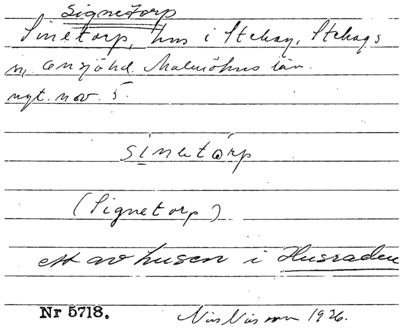 Signetorp
Sinetorp, hus i Stehag, Stehags
sn, Onsjöhd. Malmöhus län.
nyt. nov. 5.
sinetorp
(Signetorp)
ett av husen i Husraden
Nr 5718. Nils Nilsson 1926.